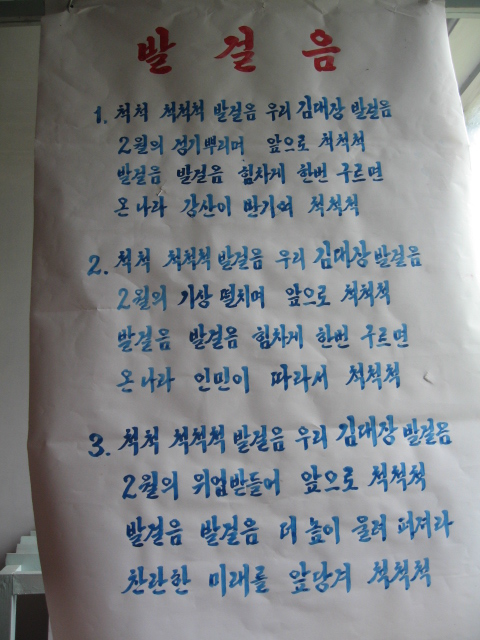 발걸음
1. 척척 척척척 발걸음 우리 김대장 발걸음
2월의 정기뿌리며 앞으로 척척척
발걸음 발걸음 힘차게 한번 구르면
온 나라 강산이 반기여 척척척
2. 척척 척척척 발걸음 우리 김대장 발걸음
2월의 기상 떨치며 앞으로 척척척
발걸음 발걸음 힘차게 한번 구르면
온 나라 인민이 따라서 척척척
3. 척척 척척척 발걸음 우리 김대장 발걸음
2월의 위업받들어 앞으로 척척척
발걸음 발걸음 더 높이 울려 퍼져라
찬란한 미래를 앞당겨 척척척